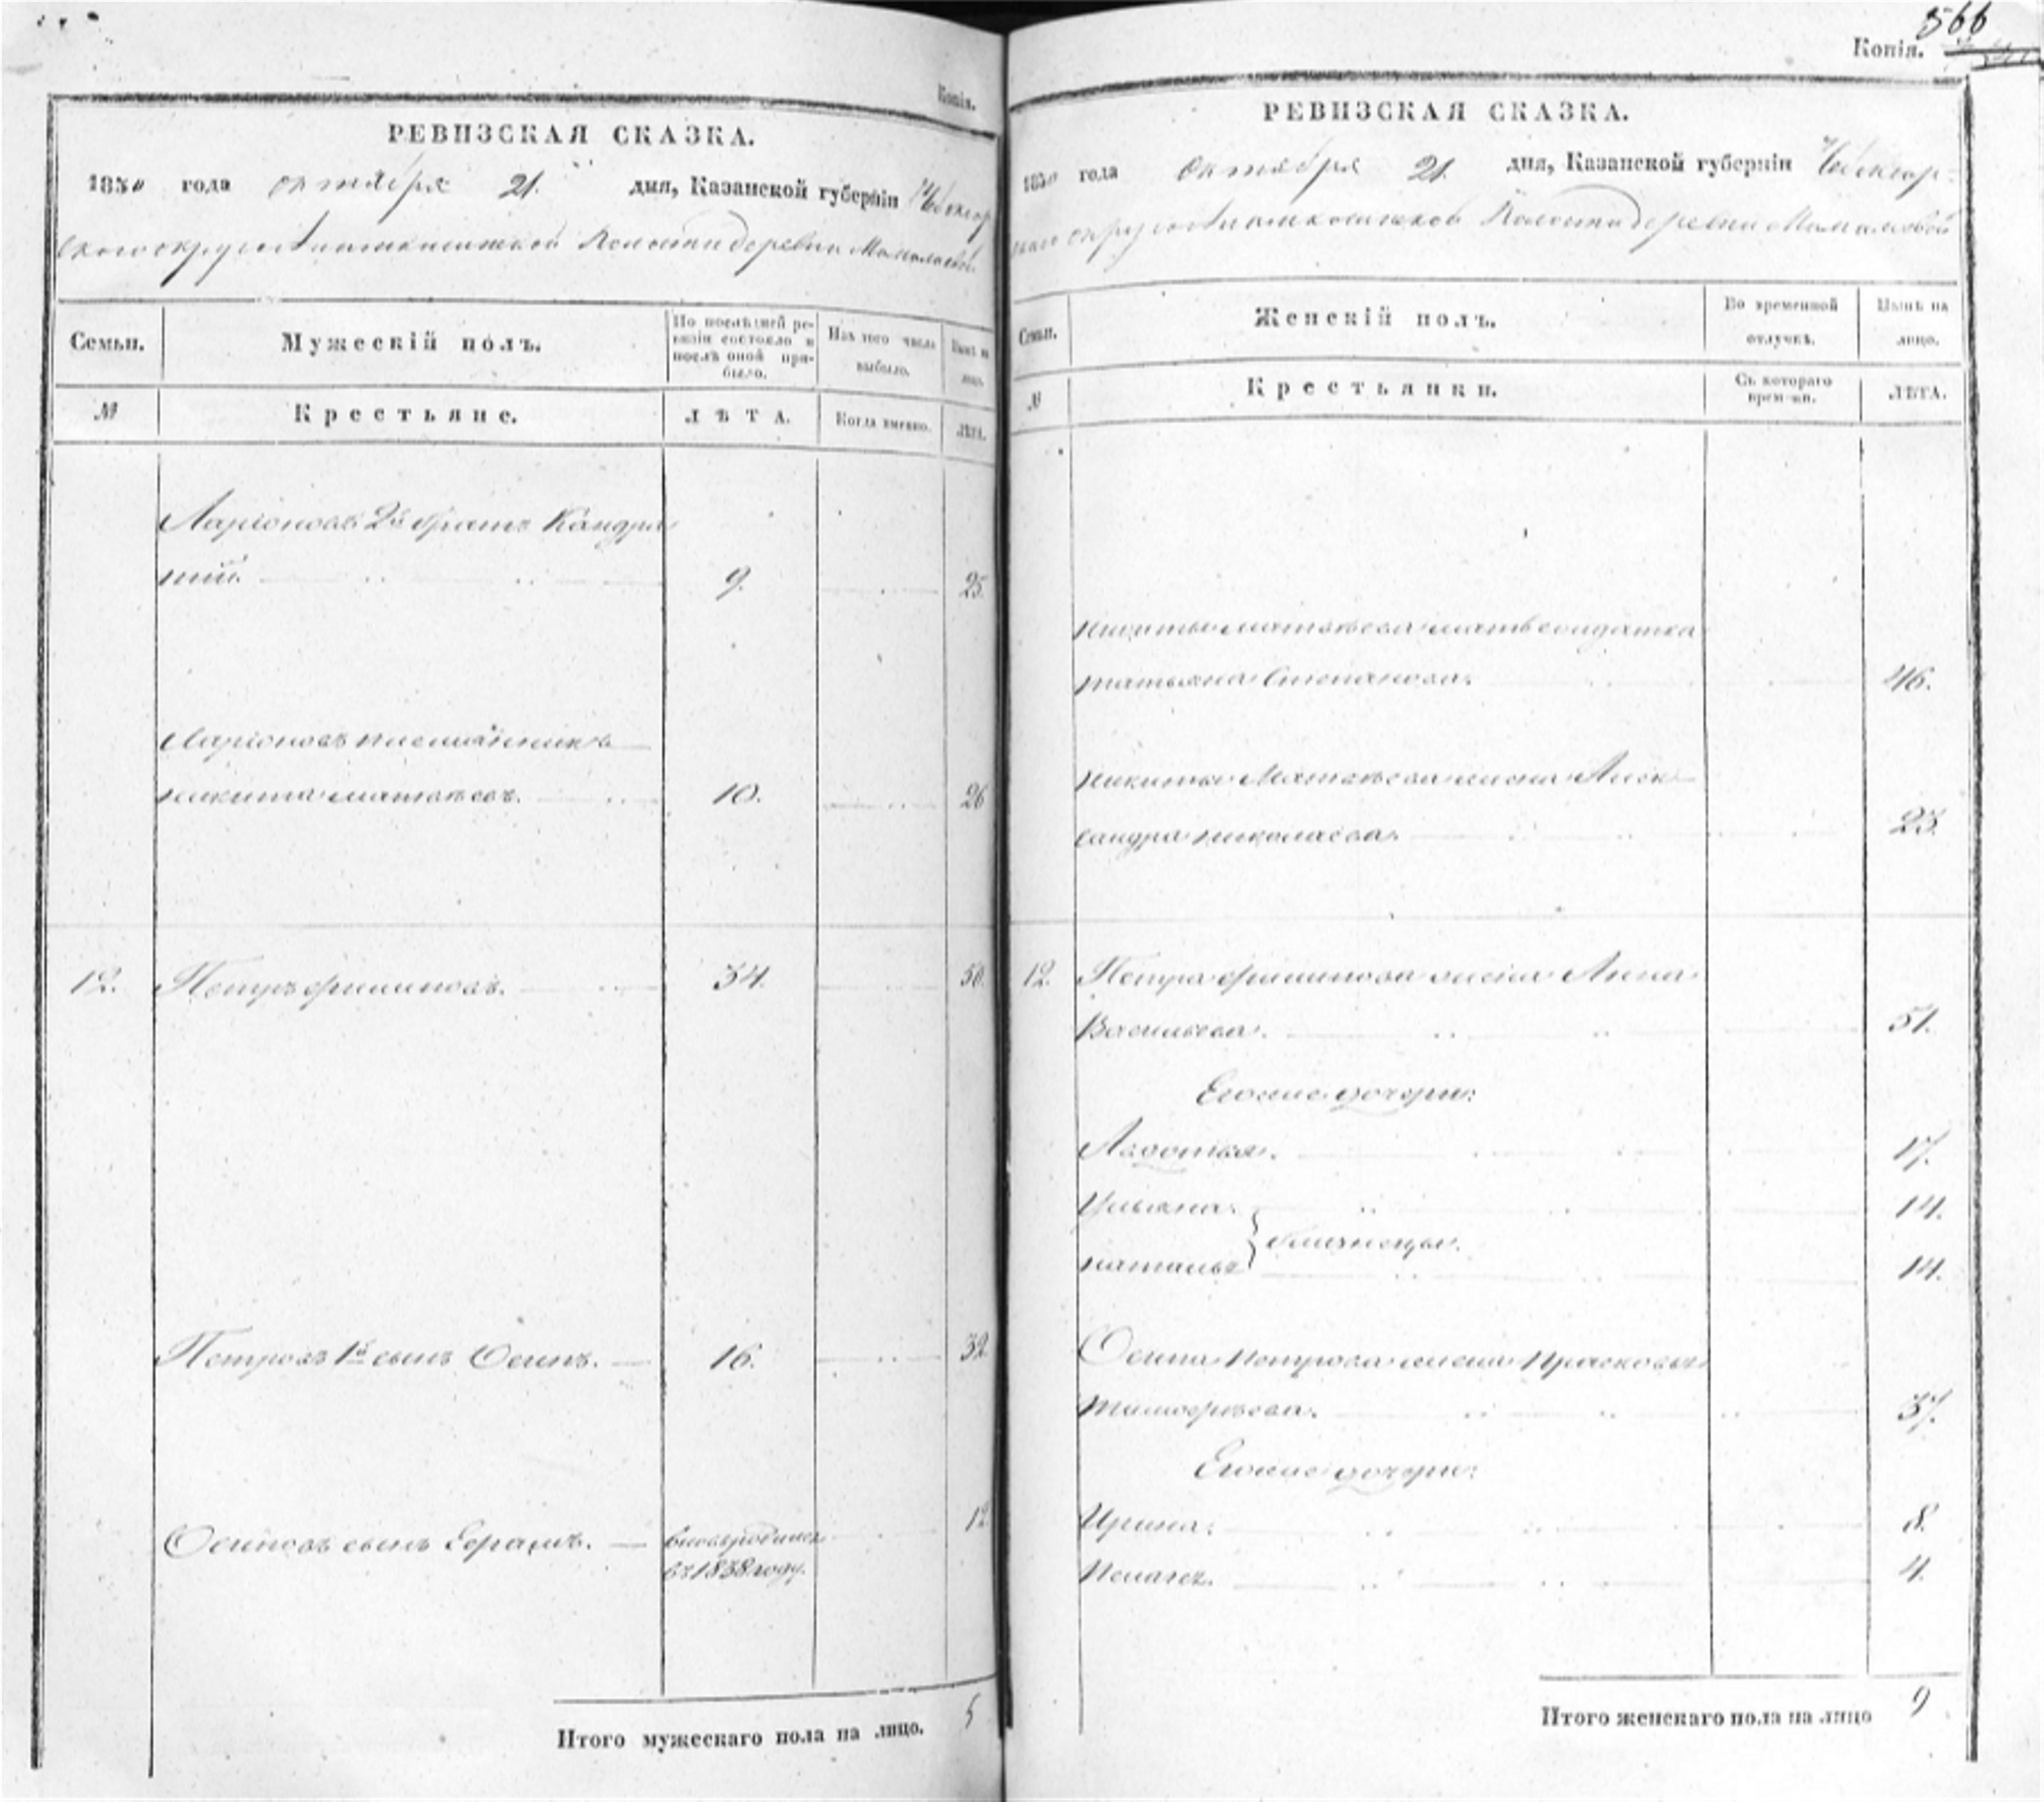 Копія.
РЕВИЗСКАЯ СКАЗКА.
1850 года октября 21. дня, Казанской губерніи Чебоксар
скаго округа волости деревни
Семьи.
Мужескій полъ.
По послѣдней ре-
визіи состояло и
послѣ оной при-
было.
Изъ того числа
выбыло.
Нынѣ на
лицо.
№
Крестьяне.
ЛѢТА.
Когда именно.
ЛѢТА.
Ларіоновъ 2й братъ Кандра
тій. 9. 25.
Ларіоновъ племянникъ
никита матвѣевъ. 10. 26
12. Петръ филиповъ. 34. 50.
Петровъ 1й сынъ Осипъ. 16. 32
Осиповъ сынъ вновь родился 12
въ 1838 году.
Итого мужескаго пола на лицо. 5
566
Копія.
РЕВИЗСКАЯ СКАЗКА.
1850 года октября 21. дня, Казанской губерніи Чебоксар-
скаго округа волости деревни
Семьи.
Женскій полъ.
Во временной
отлучкѣ.
Нынѣ на
лицо.
№
Крестьянки.
Съ котораго
времени.
ЛѢТА.
никиты матвѣева мать солдатка
татьяна Степанова. 46.
никиты Матвѣева жена Алек
сандра николаева. 23.
12. Петра филипова жена Анна
Васильева. 51.
Егоже дочери:
17.
Ульяна. 14.
близнецы.
наталья 14.
Осипа петрова жена прасковья
тимофѣева. 37.
Егоже дочери:
Ирина. 8.
Пелагея. 4.
Итого женскаго пола на лицо 9